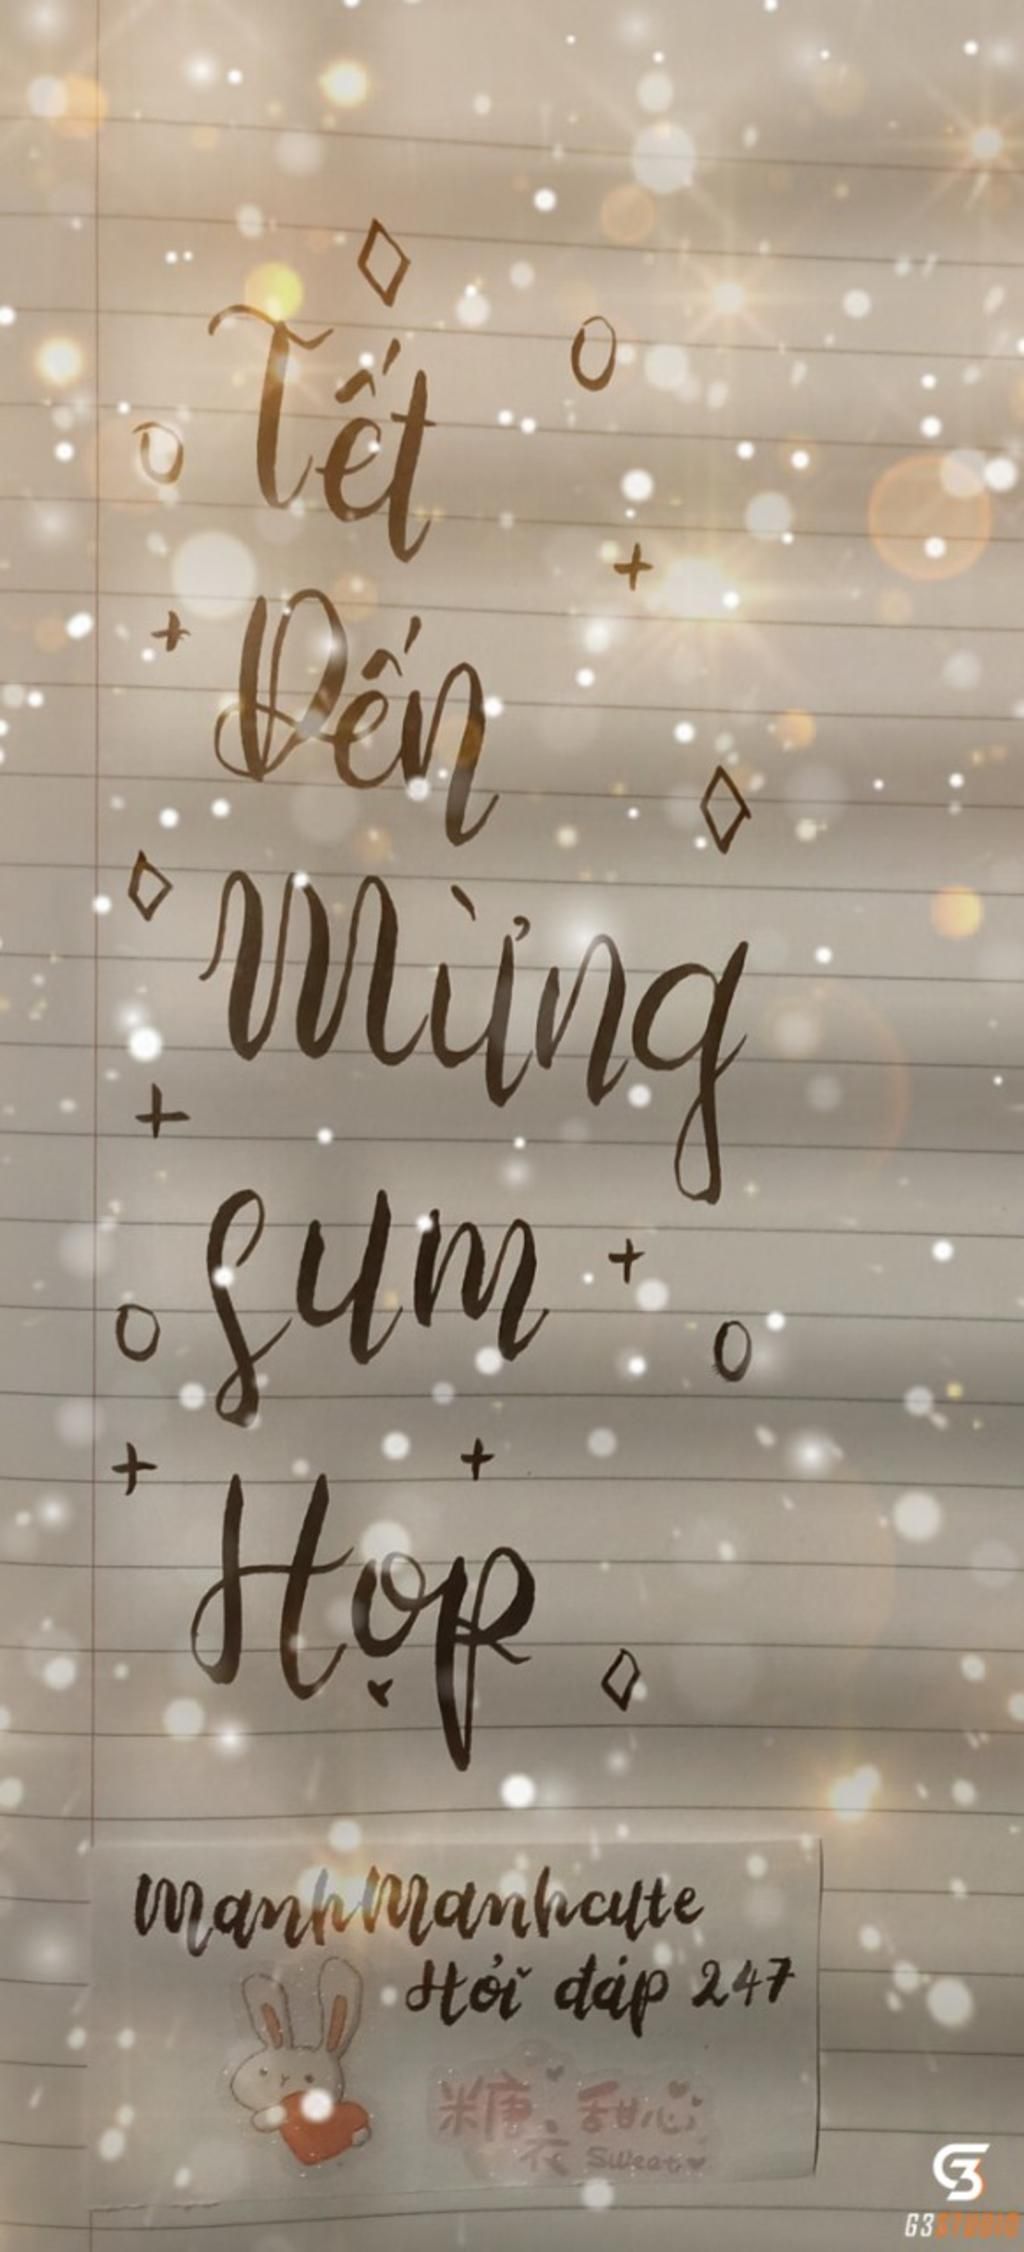 Tết
Đến
Mừng
Sum
Họp
ManhManhcute
Hỏi đáp 247
糖、甜心
Sweet
G3STUDIO